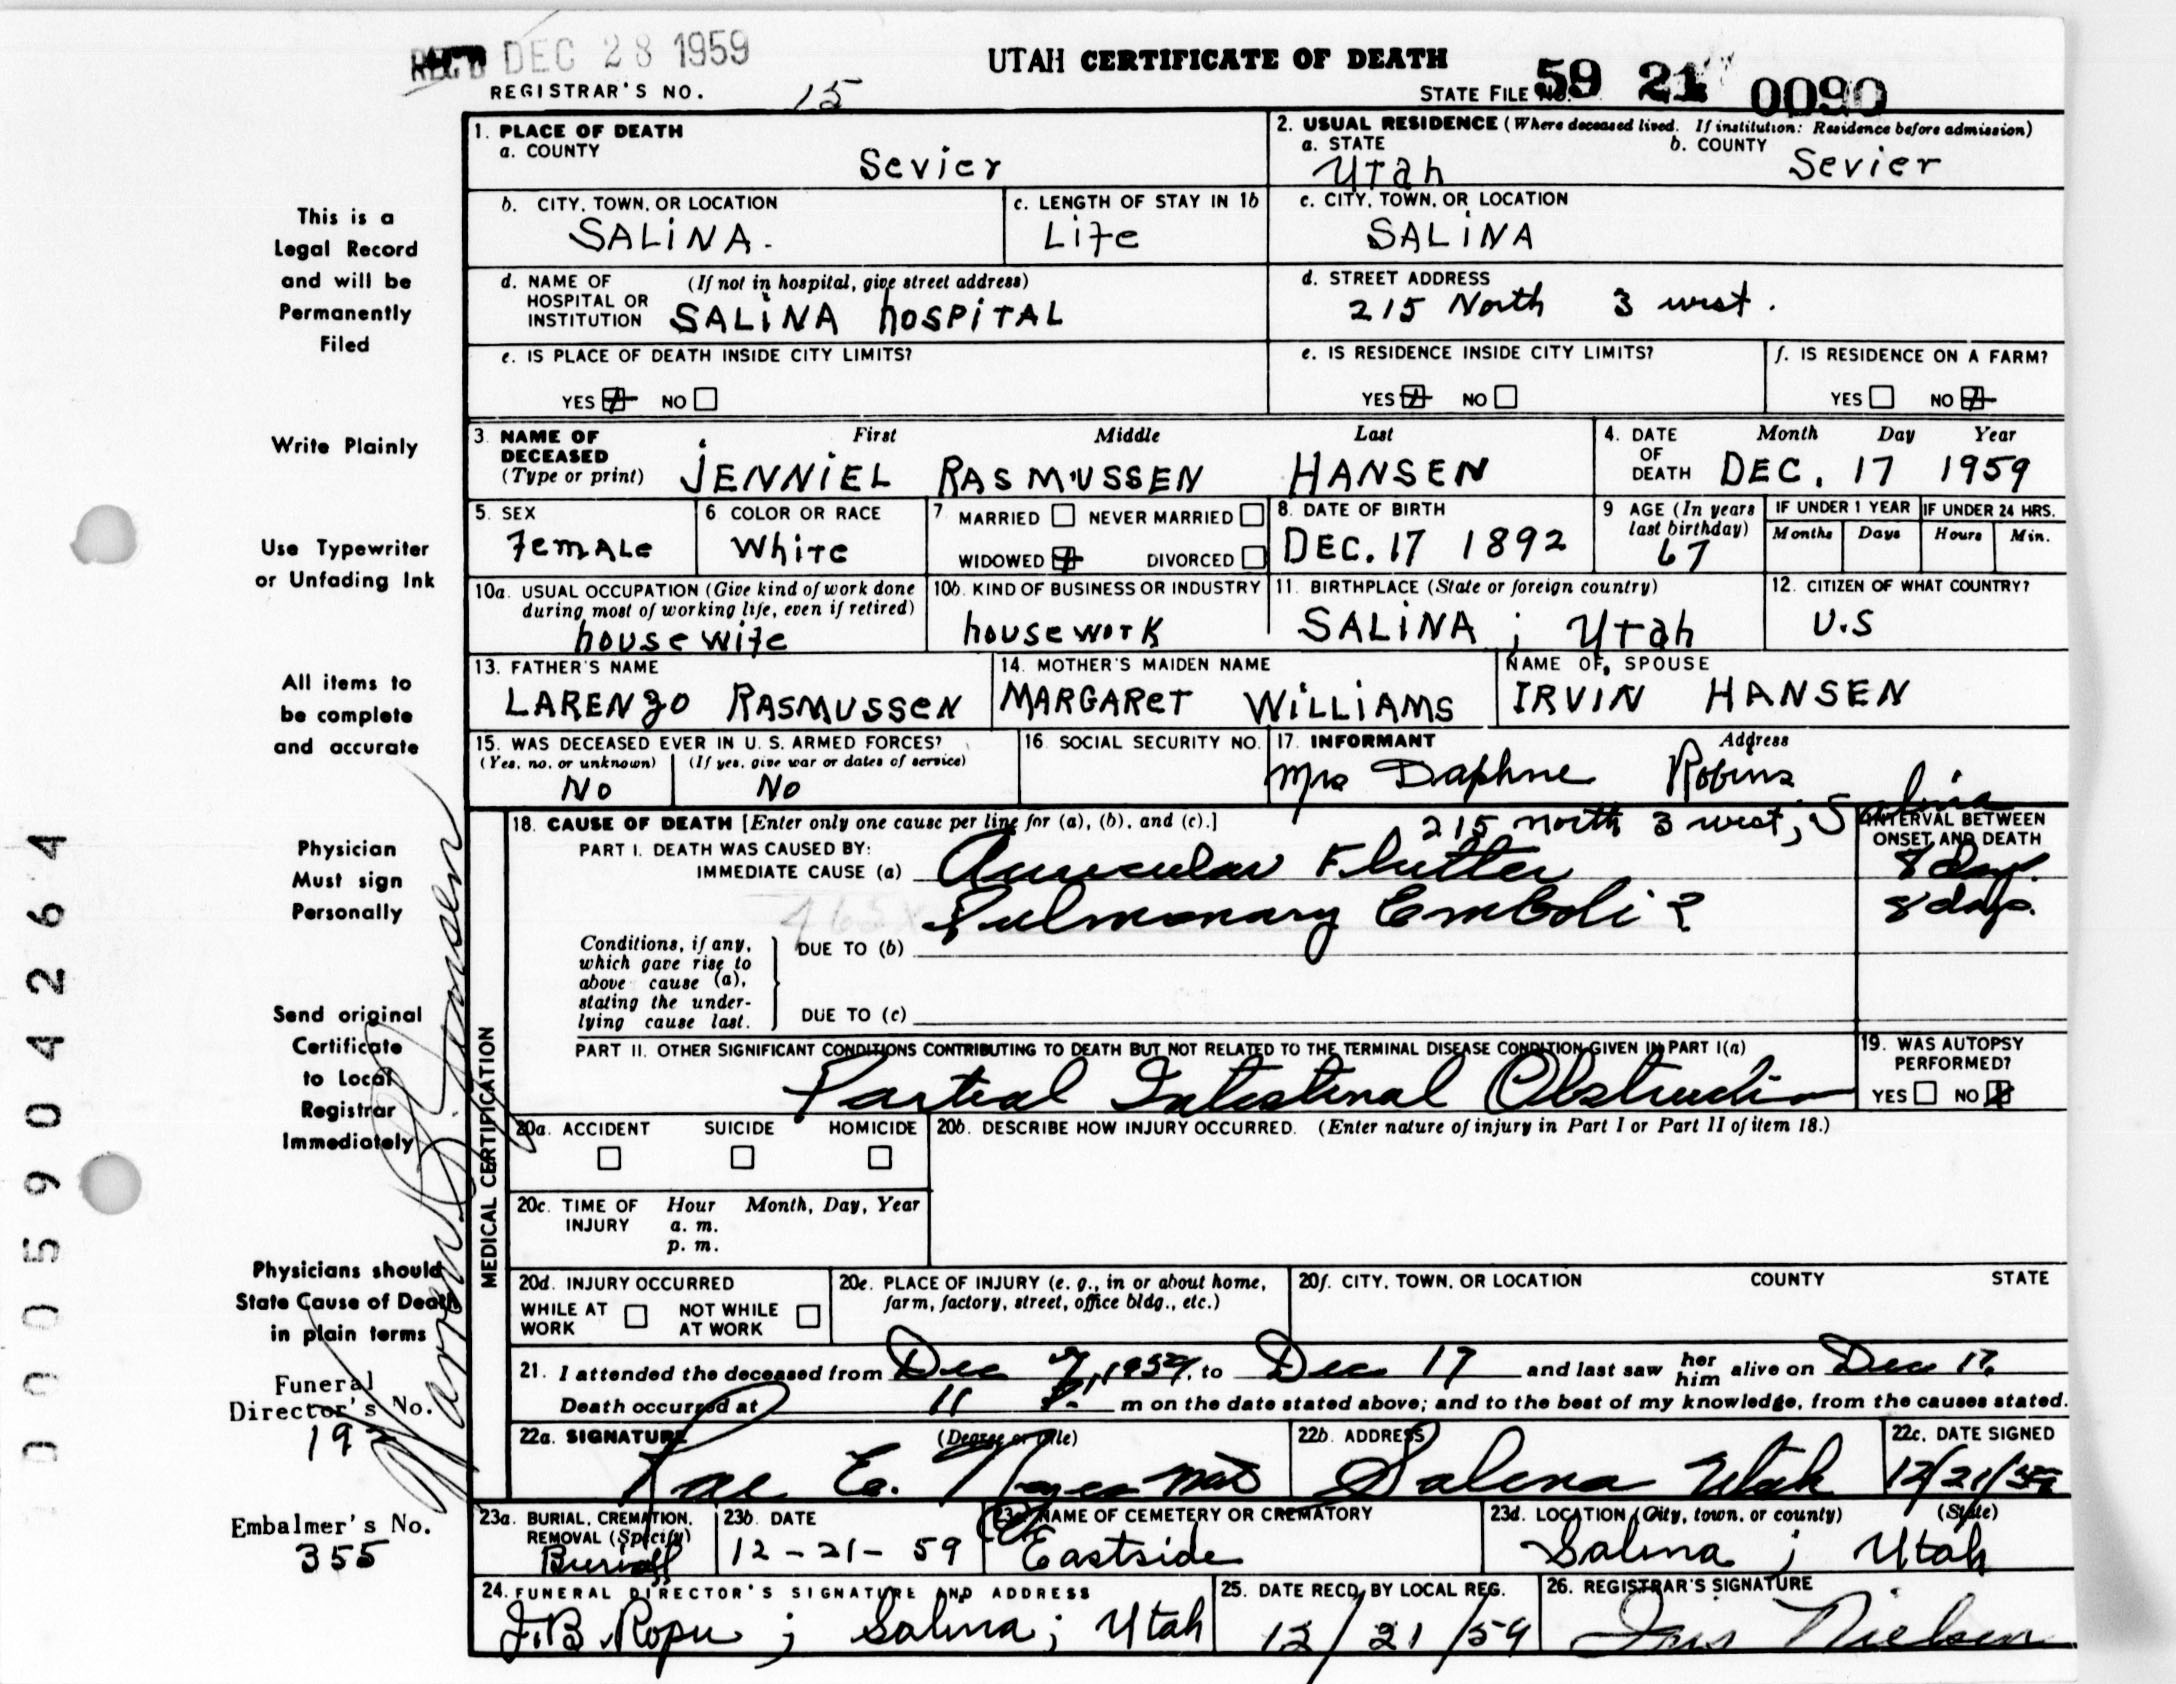 REC'D DEC 28 1959
UTAH CERTIFICATE OF DEATH
REGISTRAR'S NO. 15
STATE FILE NO. 59 21 0090
1. PLACE OF DEATH
a. COUNTY Sevier
2. USUAL RESIDENCE (Where deceased lived. If institution: Residence before admission)
a. STATE Utah
b. COUNTY Sevier
b. CITY, TOWN, OR LOCATION
SALiNA.
c. LENGTH OF STAY IN 1b
Life
c. CITY, TOWN, OR LOCATION
SALiNA
d. NAME OF HOSPITAL OR INSTITUTION (If not in hospital, give street address)
SALiNA hOSPiTAL
d. STREET ADDRESS
215 North 3 west.
e. IS PLACE OF DEATH INSIDE CITY LIMITS?
YES NO
e. IS RESIDENCE INSIDE CITY LIMITS?
YES NO
f. IS RESIDENCE ON A FARM?
YES NO
3. NAME OF DECEASED (Type or print)
First Middle Last
JENNiEL RASMUSSEN HANSEN
4. DATE OF DEATH
Month Day Year
DEC. 17 1959
5. SEX
Female
6 COLOR OR RACE
White
7 MARRIED NEVER MARRIED
WIDOWED DIVORCED
8. DATE OF BIRTH
DEC. 17 1892
9 AGE (In years last birthday)
67
IF UNDER 1 YEAR
Months Days
IF UNDER 24 HRS.
Hours Min.
10a. USUAL OCCUPATION (Give kind of work done during most of working life, even if retired)
housewife
10b. KIND OF BUSINESS OR INDUSTRY
housework
11. BIRTHPLACE (State or foreign country)
SALiNA ; Utah
12. CITIZEN OF WHAT COUNTRY?
U.S
13. FATHER'S NAME
LARENzo RASMUSSEN
14. MOTHER'S MAIDEN NAME
MARGARET WiLLiAMS
NAME OF SPOUSE
IRVIN HANSEN
15. WAS DECEASED EVER IN U. S. ARMED FORCES?
(Yes, no, or unknown) (If yes, give war or dates of service)
No No
16. SOCIAL SECURITY NO.
17. INFORMANT Address
Mrs Daphne Robins
215 north 3 west, Salina
18. CAUSE OF DEATH [Enter only one cause per line for (a), (b), and (c).]
INTERVAL BETWEEN ONSET AND DEATH
PART I. DEATH WAS CAUSED BY:
IMMEDIATE CAUSE (a) Auricular Flutter 8 days.
Pulmonary Emboli ? 8 days.
Conditions, if any, which gave rise to above cause (a), stating the underlying cause last.
DUE TO (b)
DUE TO (c)
PART II. OTHER SIGNIFICANT CONDITIONS CONTRIBUTING TO DEATH BUT NOT RELATED TO THE TERMINAL DISEASE CONDITION GIVEN IN PART I(a)
Partial Intestinal Obstruction
19. WAS AUTOPSY PERFORMED?
YES NO
20a. ACCIDENT SUICIDE HOMICIDE
20b. DESCRIBE HOW INJURY OCCURRED. (Enter nature of injury in Part I or Part II of item 18.)
20c. TIME OF INJURY Hour Month, Day, Year
a. m.
p. m.
20d. INJURY OCCURRED
WHILE AT WORK NOT WHILE AT WORK
20e. PLACE OF INJURY (e. g., in or about home, farm, factory, street, office bldg., etc.)
20f. CITY, TOWN, OR LOCATION COUNTY STATE
21. I attended the deceased from Dec 9, 1959, to Dec 17 and last saw her him alive on Dec 17
Death occurred at 11 P. m on the date stated above; and to the best of my knowledge, from the causes stated.
22a. SIGNATURE (Degree or title)
Rae E. Noyes MD
22b. ADDRESS
Salina Utah
22c. DATE SIGNED
12/21/59
23a. BURIAL, CREMATION, REMOVAL (Specify)
Buriall
23b. DATE
12-21-59
23c. NAME OF CEMETERY OR CREMATORY
Eastside
23d. LOCATION (City, town, or county) (State)
Salina ; Utah
24. FUNERAL DIRECTOR'S SIGNATURE AND ADDRESS
J.B. Roper ; Salina ; Utah
25. DATE RECD. BY LOCAL REG.
12/21/59
26. REGISTRAR'S SIGNATURE
Iris Nielsen
This is a
Legal Record
and will be
Permanently
Filed
Write Plainly
Use Typewriter
or Unfading Ink
All items to
be complete
and accurate
Physician
Must sign
Personally
Send original
Certificate
to Local
Registrar
Immediately
Physicians should
State Cause of Death
in plain terms
Funeral
Director's No.
192
Embalmer's No.
355
MEDICAL CERTIFICATION
0005904264